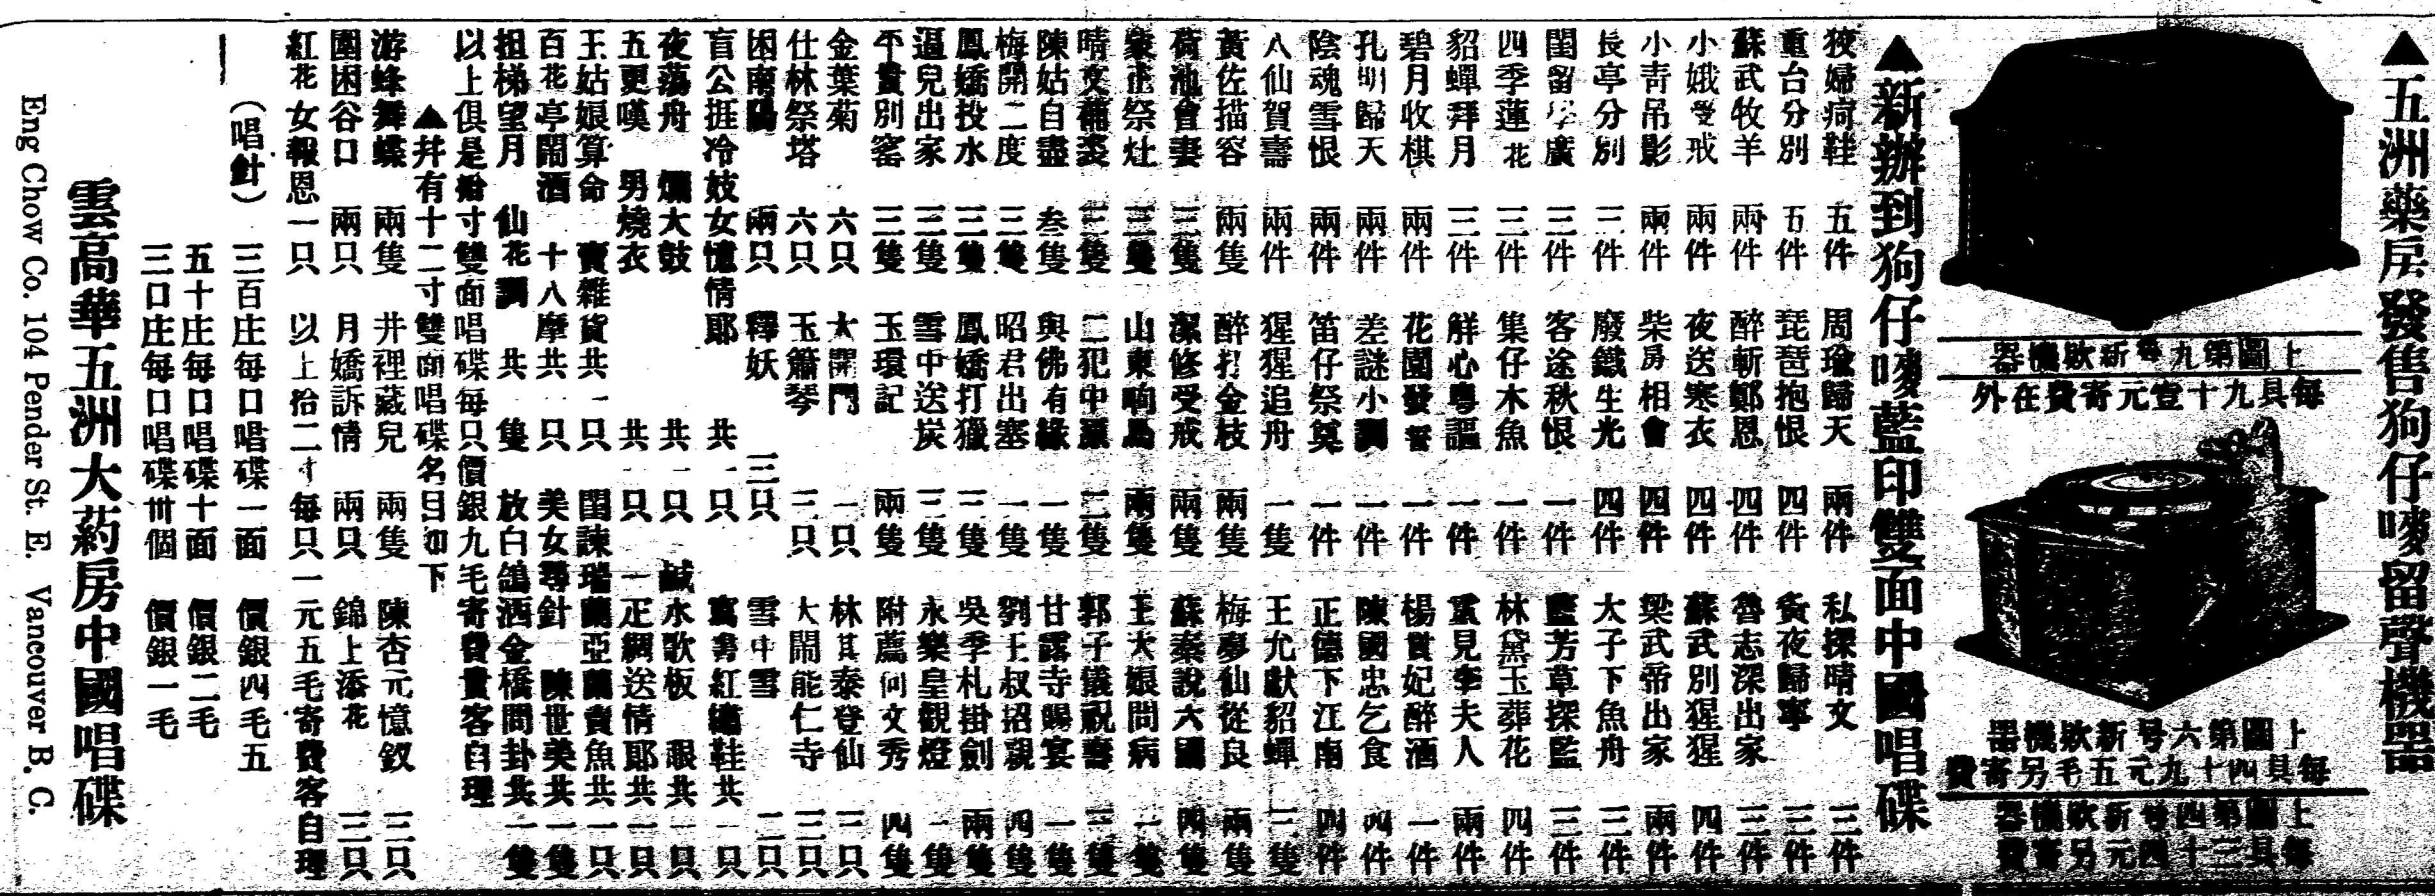 ▲五洲藥房發售狗仔嘜留聲機器
上圖第九号新欵機器
每具九十壹元寄費在外
上圖第六号新欵機器
每具四十九元五毛另寄費
上圖第四号新欵機器
每具三十四元另寄費
▲新辦到狗仔嘜藍印雙面中國唱碟
狡婦疴鞋 五件 周瑜歸天 兩件 私探晴文 三件
重台分別 五件 琵琶抱恨 四件 夤夜歸寧 三件
蘇武牧羊 兩件 醉斬鄭恩 四件 魯志深出家 三件
小娥受戒 兩件 夜送寒衣 四件 蘇武別猩猩 四件
小青吊影 兩件 柴房相會 四件 梁武帝出家 兩件
長亭分別 三件 廢鐵生光 四件 太子下魚舟 三件
閨留學廣 三件 客途秋恨 一件 藍芳草探監 三件
四季蓮花 三件 集仔木魚 一件 林黛玉葬花 四件
貂蟬拜月 三件 解心粵謳 一件 重見李夫人 兩件
碧月收棋 兩件 花園發誓 一件 楊貴妃醉酒 一件
孔明歸天 兩件 差謎小調 一件 陳國忠乞食 四件
陰魂雪恨 兩件 笛仔祭奠 一件 正德下江南 四件
八仙賀壽 兩件 猩猩追舟 一隻 王允獻貂蟬 三隻
黃佐描容 兩隻 醉打金枝 兩隻 梅夢仙從良 兩隻
荷池會妻 三隻 潔修受戒 兩隻 蘇秦說六國 四隻
樂正祭灶 三隻 山東响馬 兩隻 王大娘問病 一隻
晴文補裘 三隻 二犯中原 二隻 郭子儀祝壽 三隻
陳姑自盡 叁隻 與佛有緣 一隻 甘露寺賜宴 一隻
梅開二度 三隻 昭君出塞 一隻 劉王叔招親 四隻
鳳嬌投水 三隻 鳳嬌打獵 三隻 吳季札掛劍 兩隻
逼兒出家 三隻 雪中送炭 三隻 永樂皇觀燈 一隻
平貴別窰 三隻 玉環記 兩隻 附薦何文秀 四隻
金葉菊 六只 大開門 一只 林其泰登仙 三只
仕林祭塔 六只 玉簫琴 三只 大鬧能仁寺 三只
困南陽 兩只 釋妖 三只 雪中雪 二只
盲公捱冷 妓女憶情郎 共一只 寫書紅繡鞋共一只
夜蕩舟 爛大鼓 共一只 鹹水歌板眼共一只
五更嘆 男燒衣 共一只 一疋綢送情郎共一只
王姑娘算命 賣雜貨共一只 閨諫瑞蘭亞蘭賣魚共一只
百花亭鬧酒 十八摩共一只 美女尋針 陳世美共一隻
担梯望月 仙花調 共一隻 放白鴿洒金橋問卦共一隻
以上俱是拾寸雙面唱碟每只價銀九毛寄費貴客自理
▲幷有十二寸雙面唱碟名目如下
游蜂舞蝶 兩隻 井裡藏兒 兩隻 陳杏元憶釵 三只
圍困谷口 兩只 月嬌訴情 兩只 錦上添花 三只
紅花女報恩一只 以上拾二寸每只一元五毛寄費客自理
(唱針) 三百庄每口唱碟一面 價銀四毛五
五十庄每口唱碟十面 價銀二毛
三口庄每口唱碟卅個 價銀一毛
雲高華五洲大葯房中國唱碟
Eng Chow Co. 104 Pender St. E. Vancouver B. C.